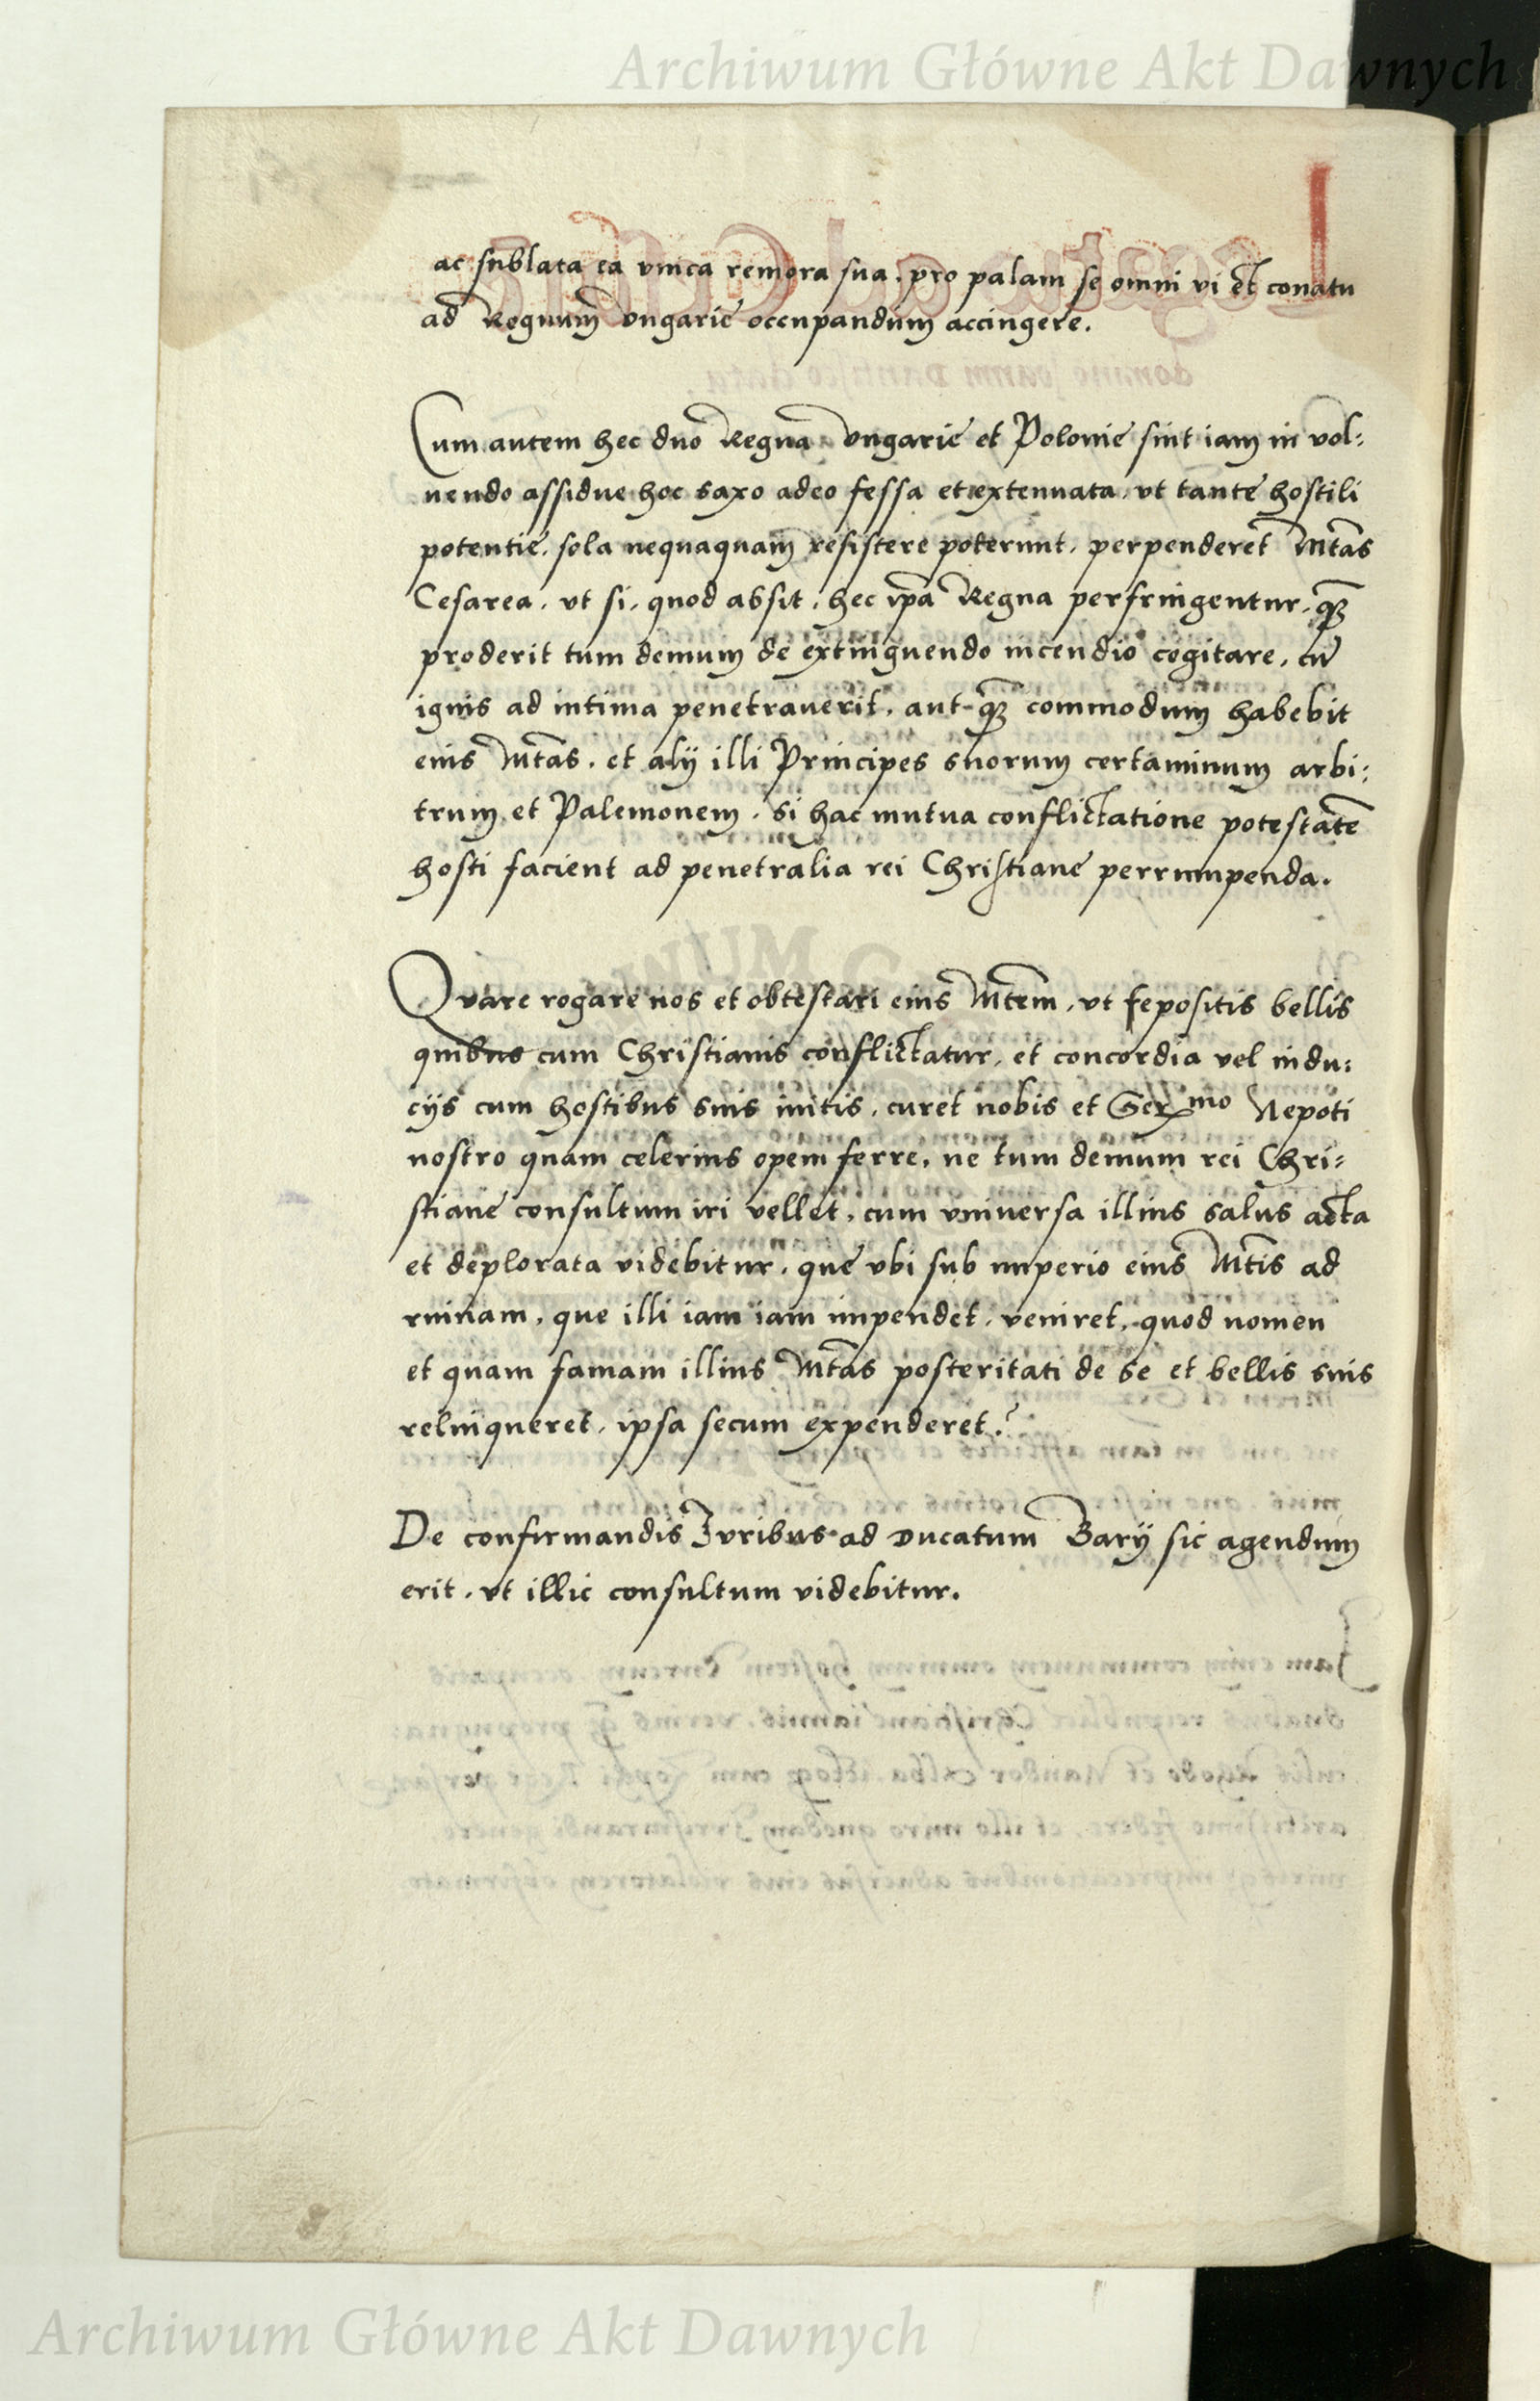 Archiwum Główne Akt Dawnych
ac sublata ea vnica remora sua, pro palam se omni vi et conatu
ad Regnum Vngarie occupandum accingere.
Cum autem hec duo Regna Vngarie et Polonie sint iam in vol:
uendo assidue hoc saxo adeo fessa et extenuata, vt tante hostili
potentie, sola nequaquam resistere poterunt, perpenderet Mtas
Cesarea, vt si, quod absit, hec ipa Regna perfringentur,
proderit tum demum de extinguendo incendio cogitare, cu
ignis ad intima penetrauerit, aut commodum habebit
eius Mtas, et alij illi Principes suorum certaminum arbi:
trum et Palemonem, si hac mutua conflictatione potestate
hosti facient ad penetralia rei Christiane perrumpenda.
Quare rogare nos et obtestari eius Mtem, vt sepositis bellis
quibus cum Christianis conflictatur, et concordia vel indu:
cijs cum hostibus suis initis, curet nobis et Serxmo Nepoti
nostro quam celerius opem ferre, ne tum demum rei Chri=
stiane consultum iri vellet, cum vniuersa illius salus acta
et deplorata videbitur, que vbi sub imperio eius Mtis ad
ruinam, que illi iam iam impendet, veniret, quod nomen
et quam famam illius Mtas posteritati de se et bellis suis
relinqueret, ipsa secum expenderet?
De confirmandis Iuribus ad Ducatum Barij sic agendum
erit, vt illic consultum videbitur.
Archiwum Główne Akt Dawnych